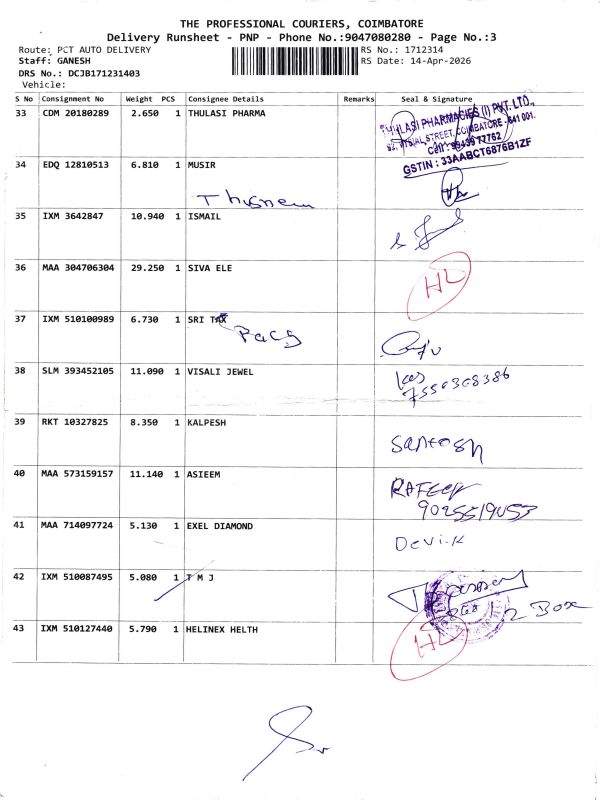 THE PROFESSIONAL COURIERS, COIMBATORE
Delivery Runsheet - PNP - Phone No.:9047080280 - Page No.:3
Route: PCT AUTO DELIVERY RS No.: 1712314
Staff: GANESH RS Date: 14-Apr-2026
DRS No.: DCJB171231403
Vehicle:
S No Consignment No Weight PCS Consignee Details Remarks Seal & Signature
33 CDM 20180289 2.650 1 THULASI PHARMA
THULASI PHARMACIES (I) PVT. LTD.,
STREET, COIMBATORE - 641 001.
Cell: 77762
GSTIN : 33AABCT6876B1ZF
34 EDQ 12810513 6.810 1 MUSIR
35 IXM 3642847 10.940 1 ISMAIL
36 MAA 304706304 29.250 1 SIVA ELE
HL
37 IXM 510100989 6.730 1 SRI TAX
38 SLM 393452105 11.090 1 VISALI JEWEL
39 RKT 10327825 8.350 1 KALPESH
Santosh
40 MAA 573159157 11.140 1 ASIEEM
41 MAA 714097724 5.130 1 EXEL DIAMOND
Devi.K
42 IXM 510087495 5.080 1 T M J
2 Box
43 IXM 510127440 5.790 1 HELINEX HELTH
HL